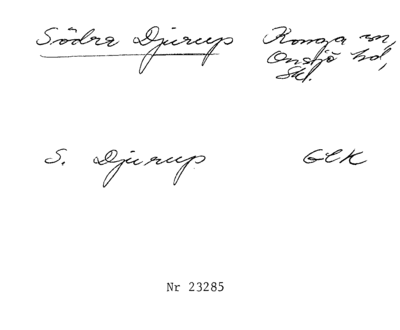 Södra Djurup Konga sn,
Onsjö hd,
Sk.
S. Djurup GEK
Nr 23285